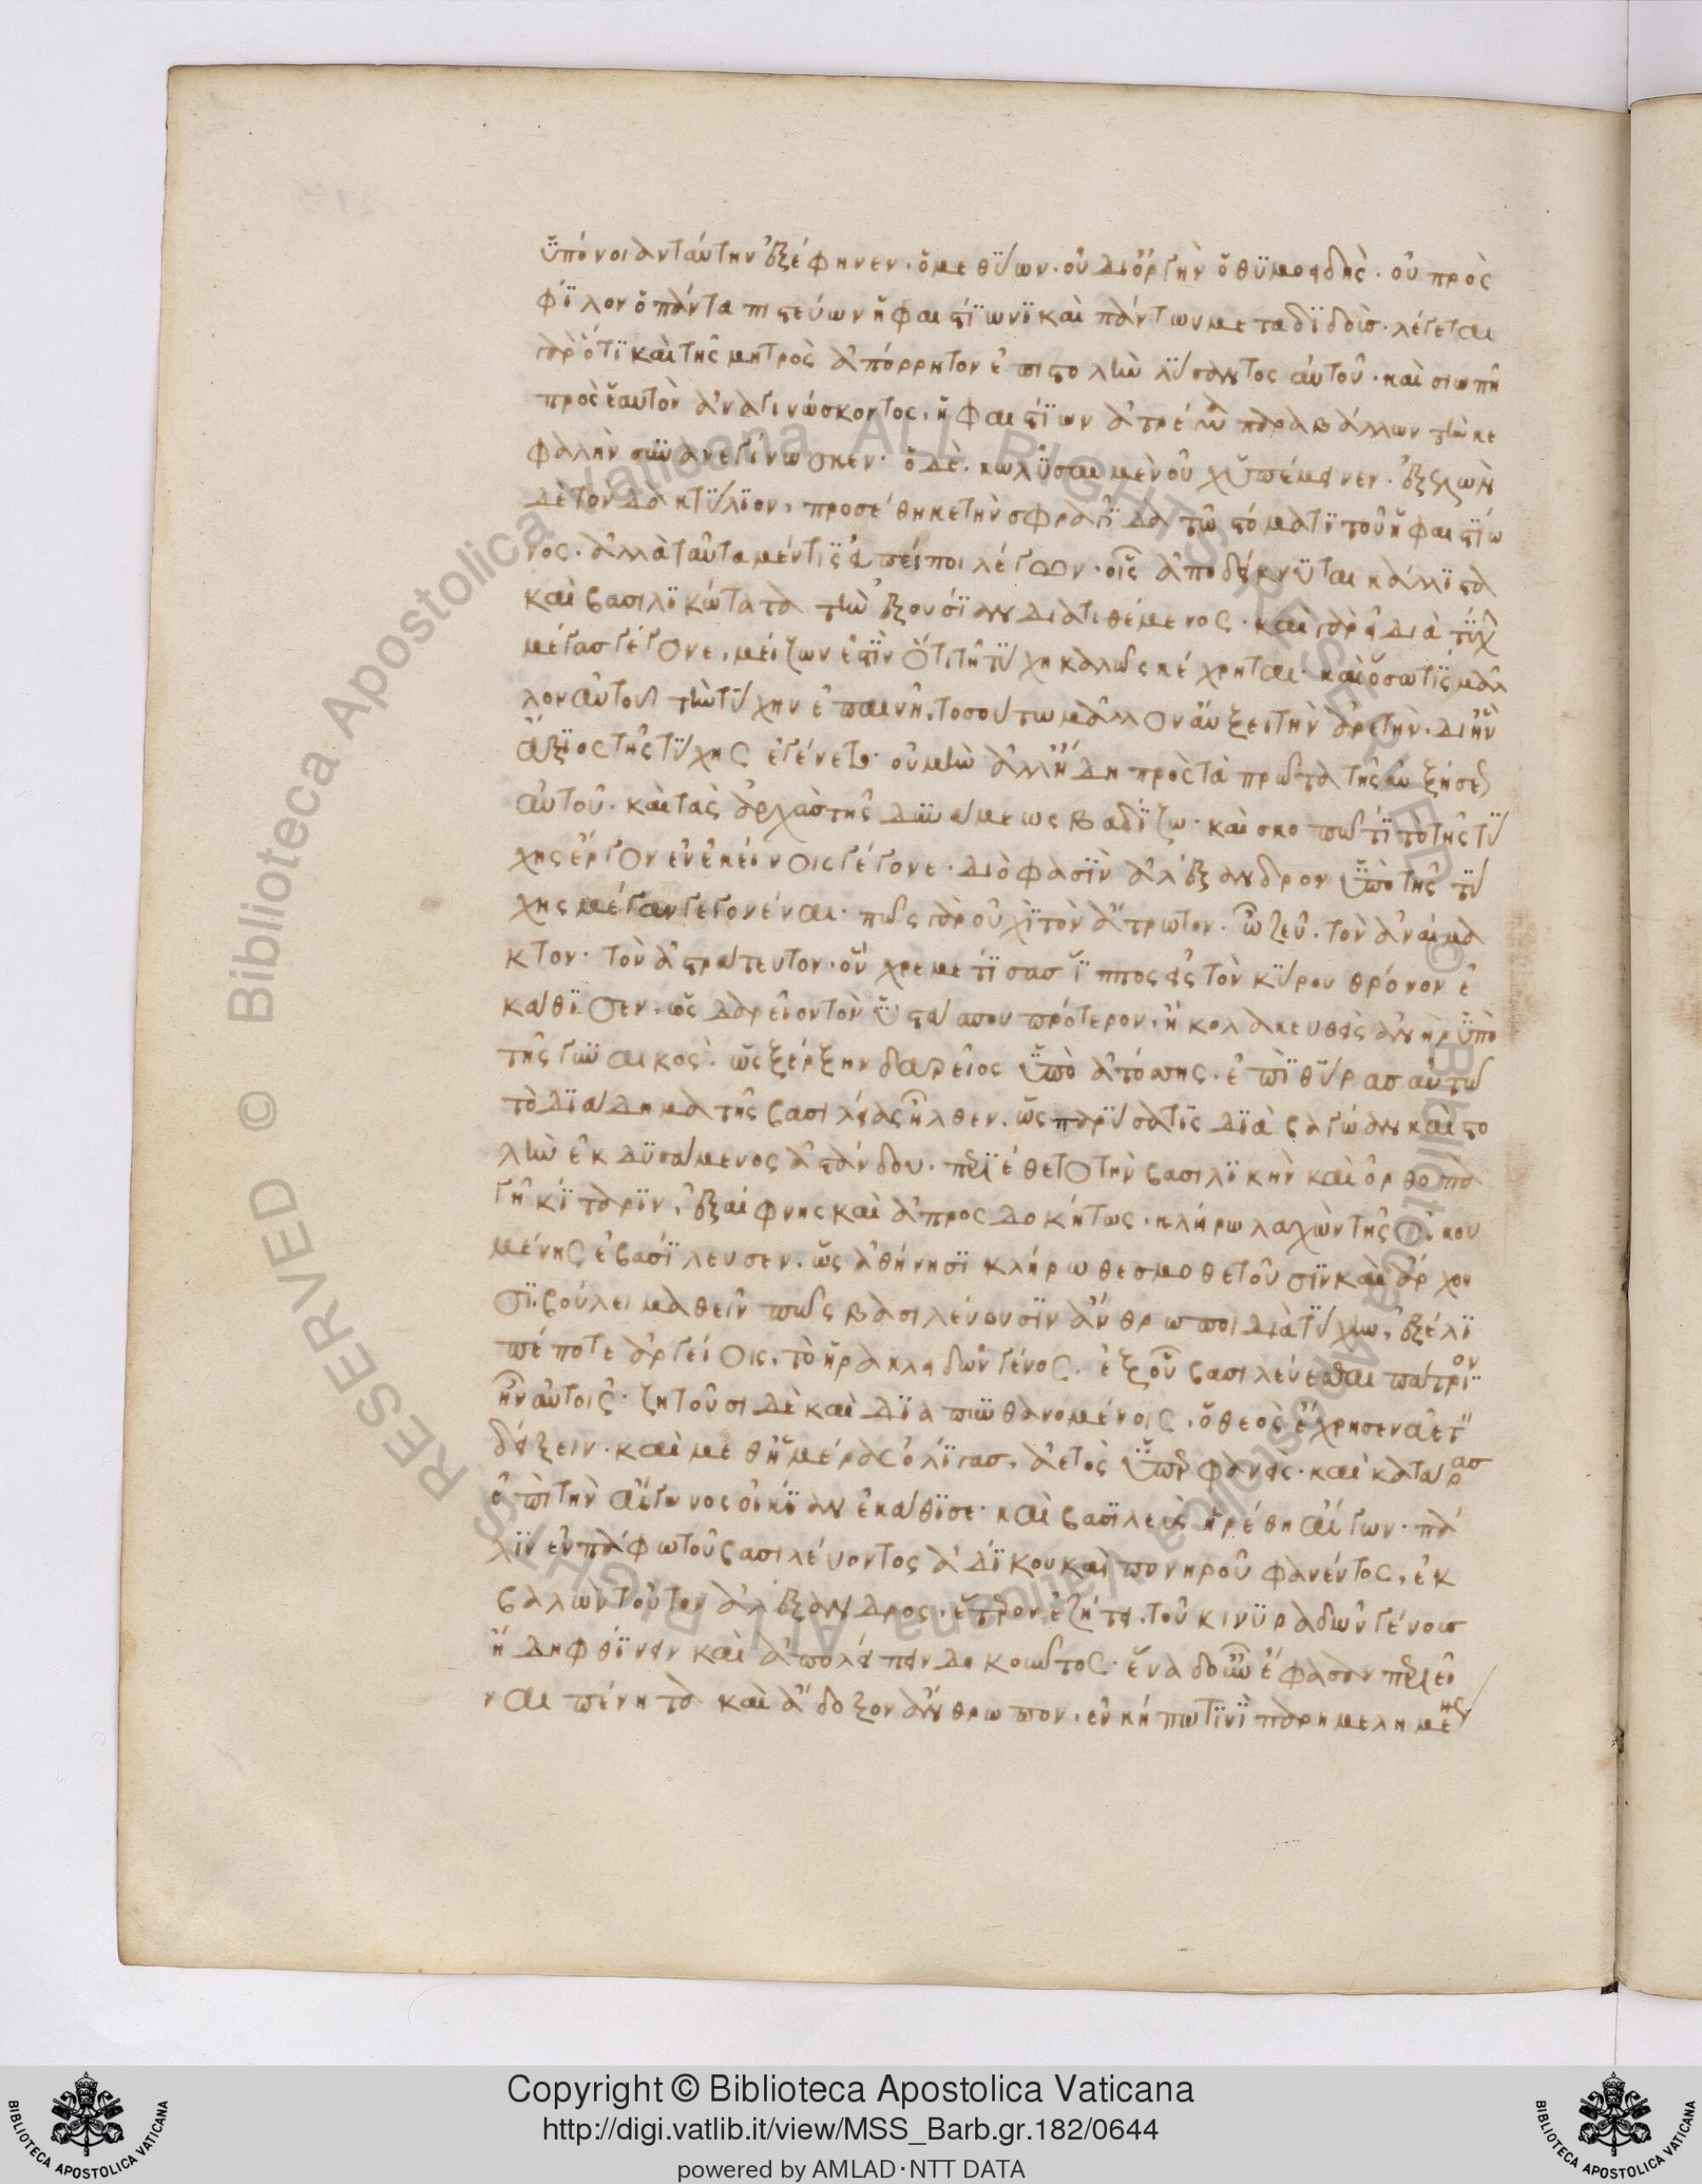 ὑπόνοιαν ταύτην ἐξέφηνεν· ὁ μεθύων· οὐ δι' ὀργὴν ὁ θυμοειδὴς· οὐ πρὸς
φίλον ὁ πάντα πιστεύων ἡφαιστίωνι καὶ πάντων μεταδιδούς· λέγεται
γὰρ ὅτι καὶ τῆς μητρὸς ἀπόρρητον ἐπιστολὴν λύσαντος αὐτοῦ· καὶ σιωπῆ
πρὸς ἑαυτὸν ἀναγινώσκοντος, ἡφαιστίων ἀτρέμα παραβάλλων τὴν κε
φαλὴν συνανεγίνωσκεν· ὁ δὲ· κωλῦσαι μὲν οὐχ ὑπέμεινεν· ἐξελὼν
δὲ τὸν δακτύλιον, προσέθηκε τὴν σφραγῖδα τῶ στόματι τοῦ ἡφαιστίω
νος· ἀλλὰ ταῦτα μέν τις ἀπείποι λέγων· οἷς ἀποδείκνυται κάλλιστα
καὶ βασιλικώτατα τὴν ἐξουσίαν διατιθέμενος· καὶ γὰρ εἰ διὰ τύχ
μέγας γέγονε, μείζων ἐστὶν ὅτι τῆ τύχη καλῶς κέχρηται· καὶ ὅσω τις μᾶλ
λον αὐτοῦ τὴν τύχην ἐπαινῆ, τοσούτω μᾶλλον αὔξει τὴν ἀρετὴν· δι' ἣν
ἄξιος τῆς τύχης ἐγένετο· οὐ μὴν ἀλλ' ἤδη πρὸς τὰ πρῶτα τῆς αὐξήσεως
αὐτοῦ· καὶ τὰς ἀρχὰς τῆς δυνάμεως βαδίζω· καὶ σκοπῶ τί τὸ τῆς τύ
χης ἔργον ἐν ἐκείνοις γέγονε· διὸ φασὶν ἀλέξανδρον ὑπὸ τῆς τύ
χης μέγαν γεγονέναι· πῶς γὰρ οὐχὶ τὸν ἄτρωτον· ὦ ζεῦ· τὸν ἀναίμα
κτον· τὸν ἀστράτευτον· ὃν χρεμετίσας ἵππος εἰς τὸν κύρου θρόνον ἐ
κάθισεν· ὡς δαρεῖον τὸν ὑστάσπου πρότερον, ἢ κολακευθεὶς ἀνὴρ ὑπὸ
τῆς γυναικὸς· ὡς ξέρξην δαρεῖος ὑπὸ ἀτόσσης· ἐπὶ θύρας αὐτῶ
τὸ διάδημα τῆς βασιλείας ἦλθεν· ὡς παρύσατις διὰ βαγώαν καὶ στο
λὴν ἐκδυσάμενος ἀστάνδου· περιέθετο τὴν βασιλικὴν καὶ ὀρθοπα
γῆ κίταριν, ἐξαίφνης καὶ ἀπροσδοκήτως· κλήρω λαχὼν τῆς οἰκου
μένης ἐβασίλευσεν· ὡς ἀθήνησι κλήρω θεσμοθετοῦσιν καὶ ἄρχου
σι· βούλει μαθεῖν πῶς βασιλεύουσιν ἄνθρωποι διὰ τύχην, ἐξέλι
πέ ποτε ἀργείοις, τὸ ἡρακλειδῶν γένος· ἐξ οὗ βασιλεύεσθαι πάτριον
ἦν αὐτοῖς· ζητοῦσι δὲ καὶ διαπυνθανομένοις, ὁ θεὸς ἔχρησεν ἀετὸν
δείξειν· καὶ μεθ' ἡμέρας ὀλίγας, ἀετὸς ὑπερφανεὶς· καὶ κατάρας
ἐπὶ τὴν αἴγωνος οἰκίαν ἐκάθισε· καὶ βασιλεὺς ἡρέθη αἴγων· πά
λιν ἐν πάφω τοῦ βασιλεύοντος ἀδίκου καὶ πονηροῦ φανέντος, ἐκ
βαλὼν τοῦτον ἀλέξανδρος· ἕτερον ἐζήτει· τοῦ κινυραδῶν γένους
ἤδη φθίνειν καὶ ἀπολείπειν δοκοῦντος· ἕνα δ' οὖν ἔφασαν περιεῖ
ναι πένητα καὶ ἄδοξον ἄνθρωπον, ἐν κήπω τινὶ παρημελημένως
Copyright © Biblioteca Apostolica Vaticana
http://digi.vatlib.it/view/MSS_Barb.gr.182/0644
powered by AMLAD·NTT DATA
BIBLIOTECA APOSTOLICA VATICANA
BIBLIOTECA APOSTOLICA VATICANA
© Biblioteca Apostolica Vaticana ALL RIGHTS RESERVED